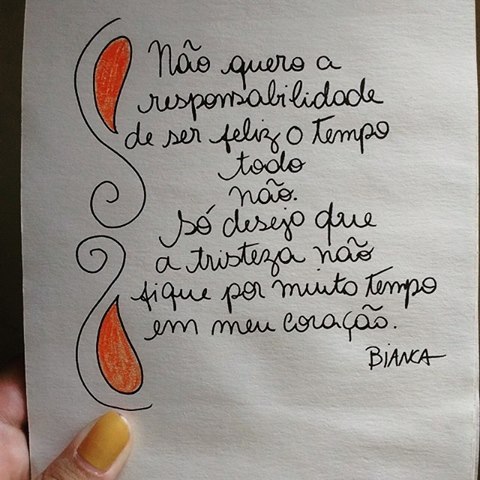 Não quero a
responsabilidade
de ser feliz o tempo
todo
não.
Só desejo que
a tristeza não
fique por muito tempo
em meu coração.
BIANCA